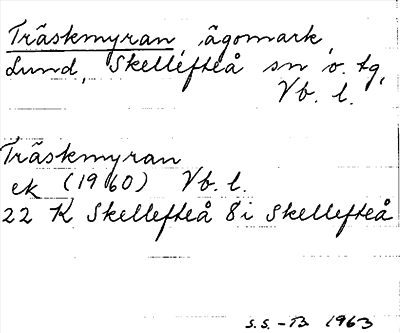 Träskmyran, ägomark,
Lund, Skellefteå sn o. tg,
Vb. l.
Träskmyran
ek (1960) Vb. l.
22 K Skellefteå 8 i Skellefteå
S.S.-B 1963